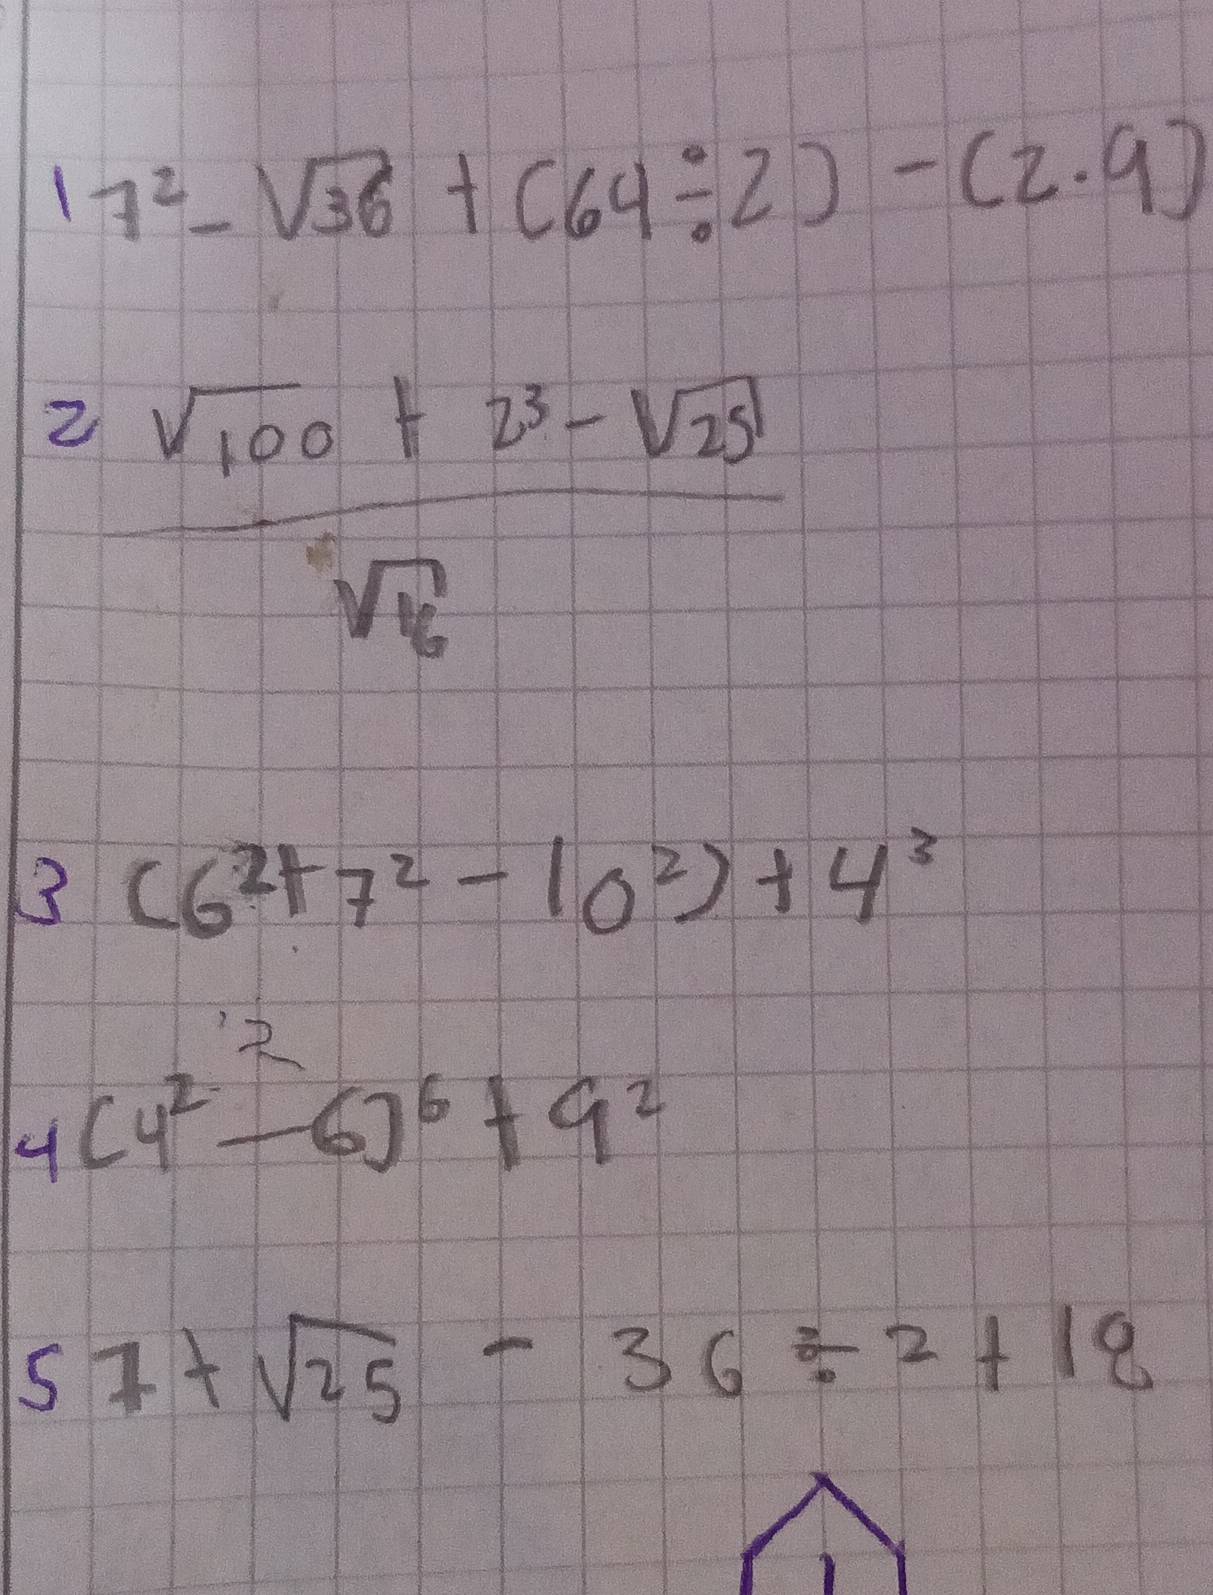 1 7² - √36 + (64 ÷ 2) - (2 · 9)
2 √100 + 2³ - √25
√16
3 (6² + 7² - 10²) + 4³
2
4 (4² - 6)⁶ + 9²
5 7 + √25 - 36 ÷ 2 + 18